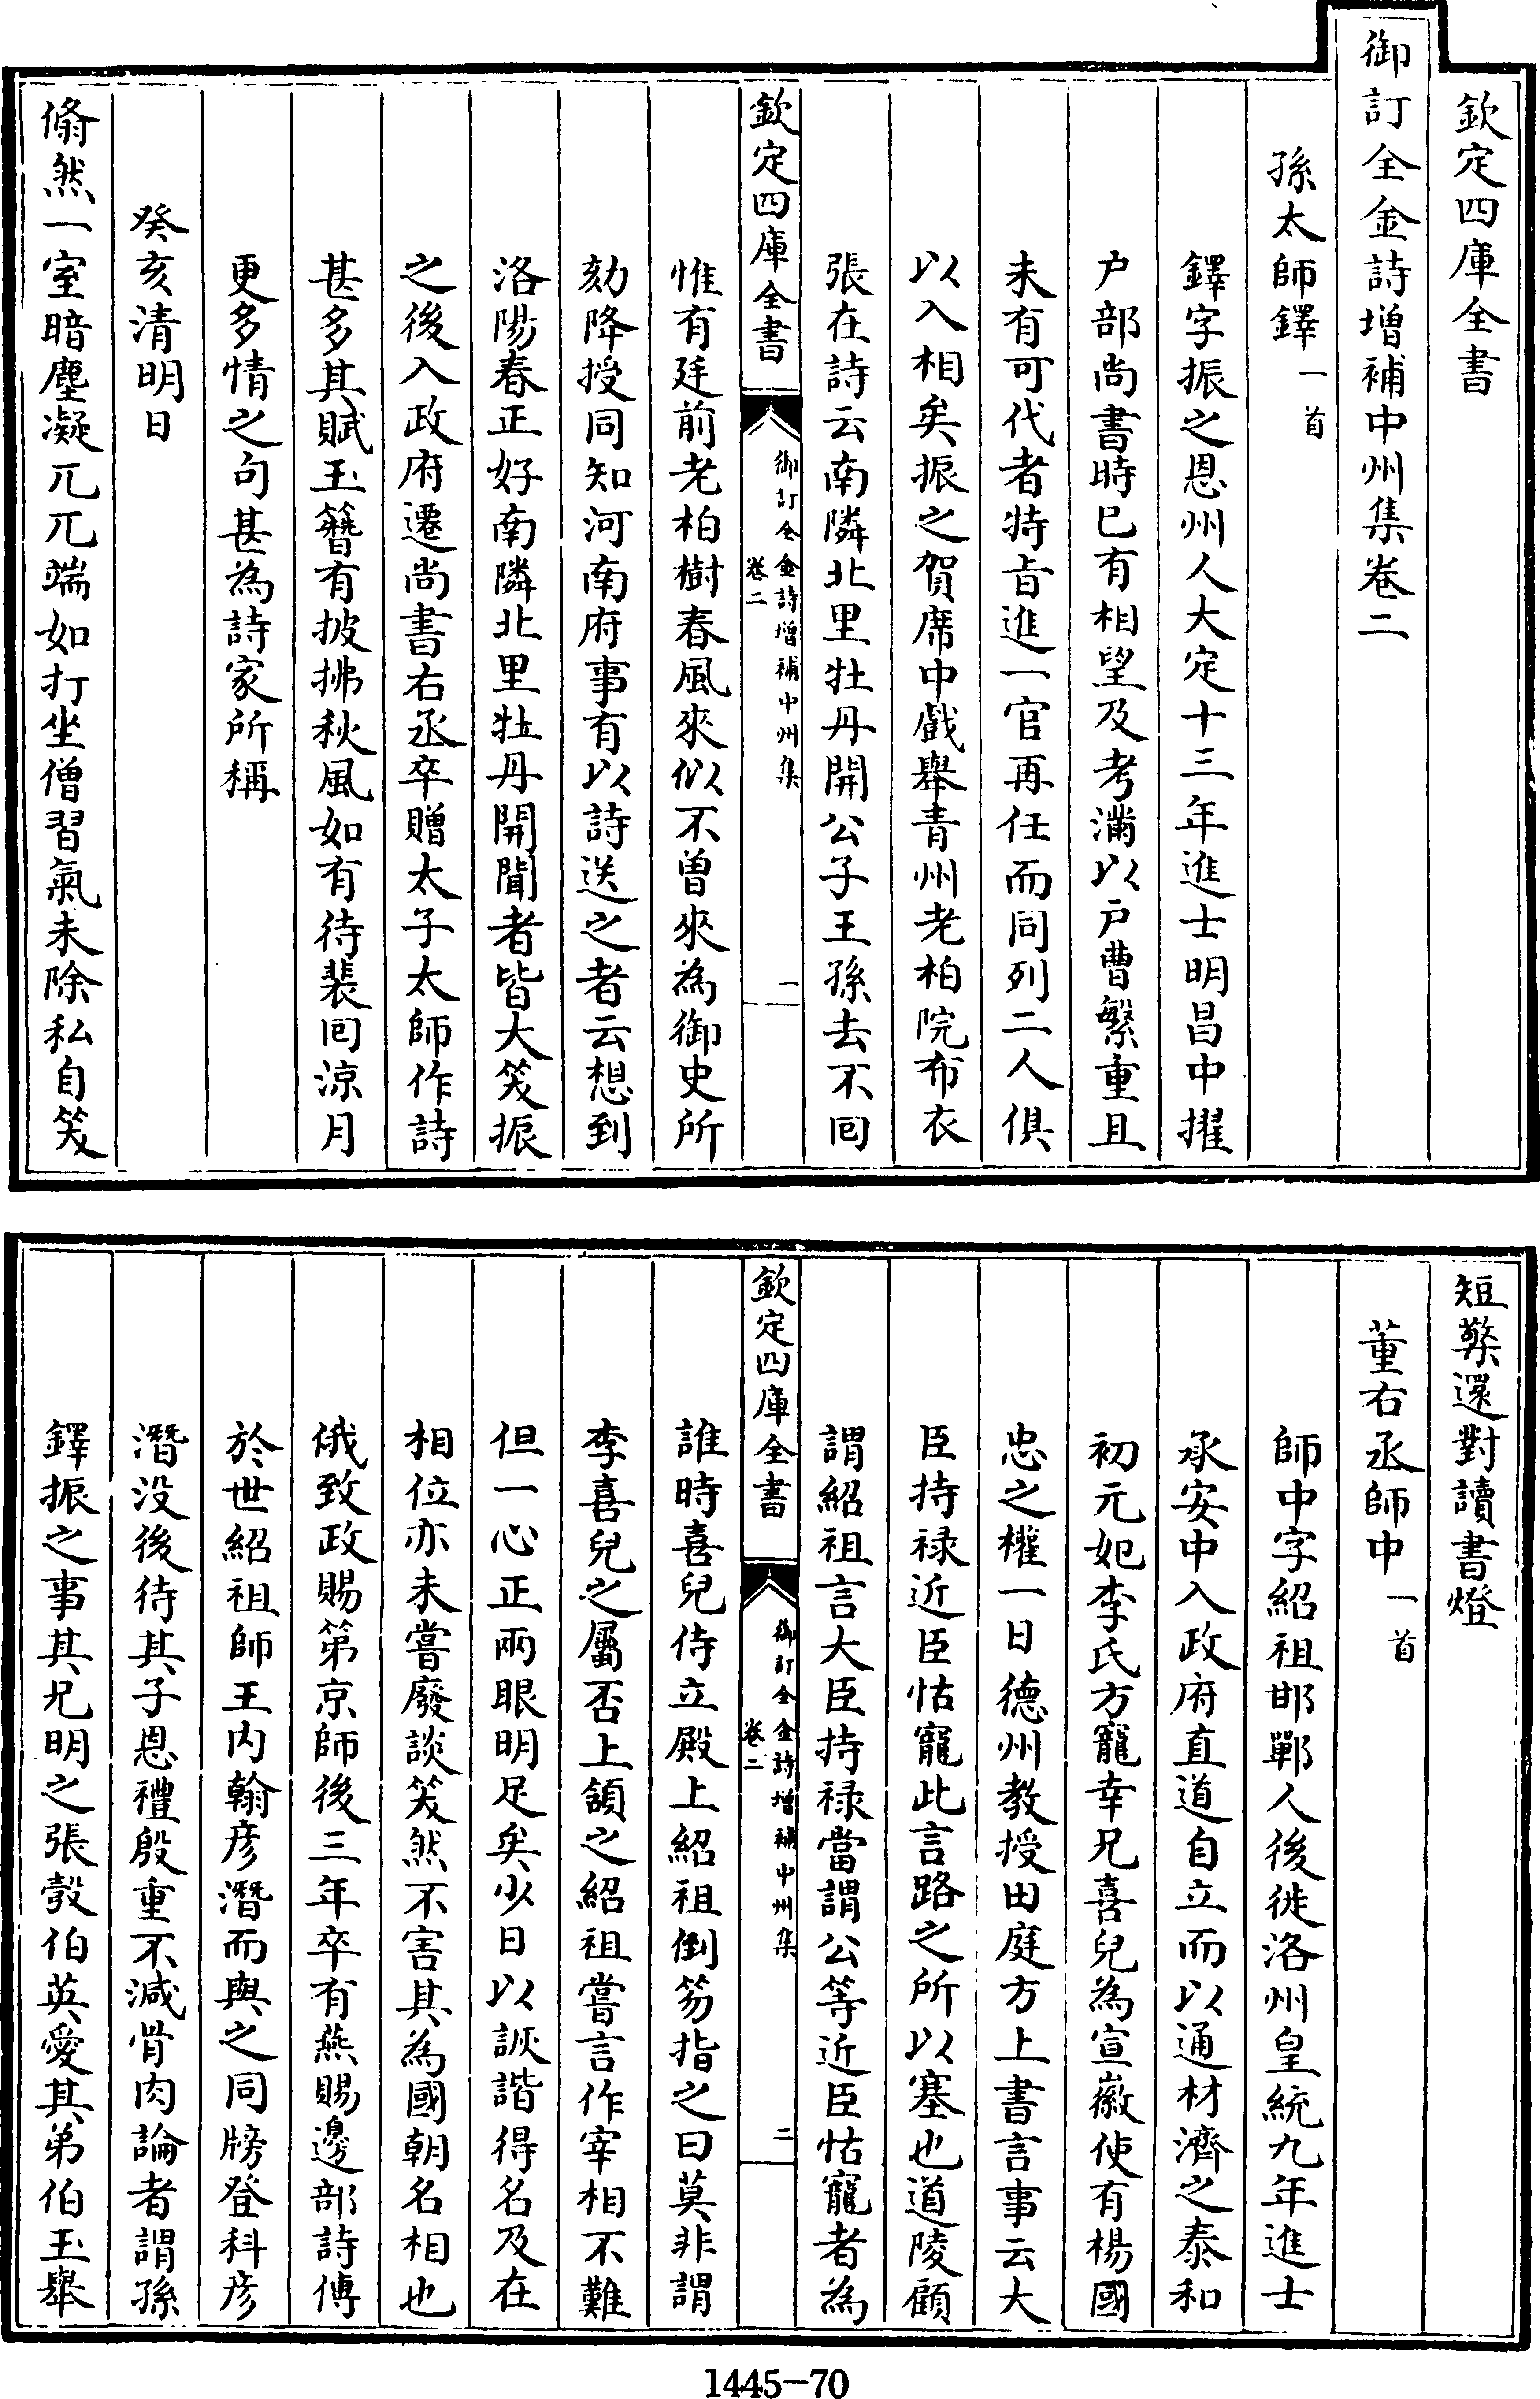 欽定四庫全書
御訂全金詩增補中州集卷二
孫太師鐸一首
鐸字振之恩州人大定十三年進士明昌中擢
户部尚書時已有相望及考滿以户曹繁重且
未有可代者特旨進一官再任而同列二人俱
以入相矣振之賀席中戲舉青州老柏院布衣
張在詩云南隣北里牡丹開公子王孫去不囘
欽定四庫全書
御訂全金詩增補中州集
卷二
一
惟有廷前老柏樹春風來似不曾來為御史所
劾降授同知河南府事有以詩送之者云想到
洛陽春正好南隣北里牡丹開聞者皆大笑振
之後入政府遷尚書右丞卒贈太子太師作詩
甚多其賦玉簪有披拂秋風如有待裴囘涼月
更多情之句甚為詩家所稱
癸亥清明日
翛然一室暗塵凝兀兀端如打坐僧習氣未除私自笑
短檠還對讀書燈
董右丞師中一首
師中字紹祖邯鄲人後徙洺州皇統九年進士
承安中入政府直道自立而以通材濟之泰和
初元妃李氏方寵幸兄喜兒為宣徽使有楊國
忠之權一日德州教授田庭方上書言事云大
臣持禄近臣怙寵此言路之所以塞也道陵顧
謂紹祖言大臣持禄當謂公等近臣怙寵者為
欽定四庫全書
御訂全金詩增補中州集
卷二
二
誰時喜兒侍立殿上紹祖倒笏指之曰莫非謂
李喜兒之屬否上頷之紹祖嘗言作宰相不難
但一心正兩眼明足矣少日以詼諧得名及在
相位亦未嘗廢談笑然不害其為國朝名相也
俄致政賜第京師後三年卒有燕賜邊部詩傳
於世紹祖師王内翰彦潛而與之同牓登科彦
潛没後待其子恩禮殷重不減骨肉論者謂孫
鐸振之事其兄明之張彀伯英愛其弟伯玉舉
1445-70